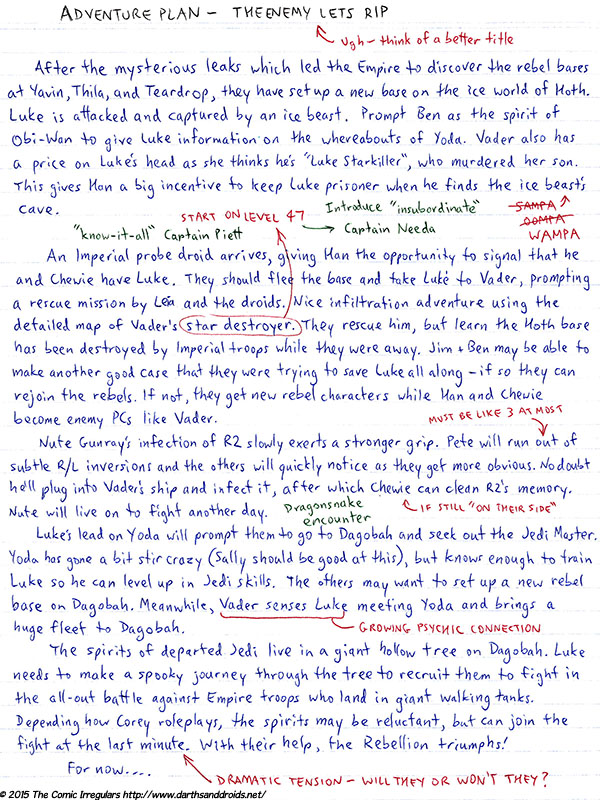 ADVENTURE PLAN – THE ENEMY LETS RIP
Ugh – think of a better title
After the mysterious leaks which led the Empire to discover the rebel bases
at Yavin, Thila, and Teardrop, they have set up a new base on the ice world of Hoth.
Luke is attacked and captured by an ice beast. Prompt Ben as the spirit of
Obi-Wan to give Luke information on the whereabouts of Yoda. Vader also has
a price on Luke's head as she thinks he's "Luke Starkiller", who murdered her son.
This gives Han a big incentive to keep Luke prisoner when he finds the ice beast's
cave.
START ON LEVEL 47
Introduce "insubordinate"
SAMPA
"know-it-all" Captain Piett
Captain Needa
OOMPA
WAMPA
An Imperial probe droid arrives, giving Han the opportunity to signal that he
and Chewie have Luke. They should flee the base and take Luke to Vader, prompting
a rescue mission by Leia and the droids. Nice infiltration adventure using the
detailed map of Vader's star destroyer. They rescue him, but learn the Hoth base
has been destroyed by Imperial troops while they were away. Jim + Ben may be able to
make another good case that they were trying to save Luke all along – if so they can
rejoin the rebels. If not, they get new rebel characters while Han and Chewie
become enemy PCs like Vader.
MUST BE LIKE 3 AT MOST
Nute Gunray's infection of R2 slowly exerts a stronger grip. Pete will run out of
subtle R/L inversions and the others will quickly notice as they get more obvious. No doubt
he'll plug into Vader's ship and infect it, after which Chewie can clean R2's memory.
Nute will live on to fight another day.
Dragonsnake
encounter
IF STILL "ON THEIR SIDE"
Luke's lead on Yoda will prompt them to go to Dagobah and seek out the Jedi Master.
Yoda has gone a bit stir crazy (Sally should be good at this), but knows enough to train
Luke so he can level up in Jedi skills. The others may want to set up a new rebel
base on Dagobah. Meanwhile, Vader senses Luke meeting Yoda and brings a
huge fleet to Dagobah.
GROWING PSYCHIC CONNECTION
The spirits of departed Jedi live in a giant hollow tree on Dagobah. Luke
needs to make a spooky journey through the tree to recruit them to fight in
the all-out battle against Empire troops who land in giant walking tanks.
Depending how Corey roleplays, the spirits may be reluctant, but can join the
fight at the last minute. With their help, the Rebellion triumphs!
For now....
DRAMATIC TENSION – WILL THEY OR WON'T THEY?
© 2015 The Comic Irregulars http://www.darthsanddroids.net/